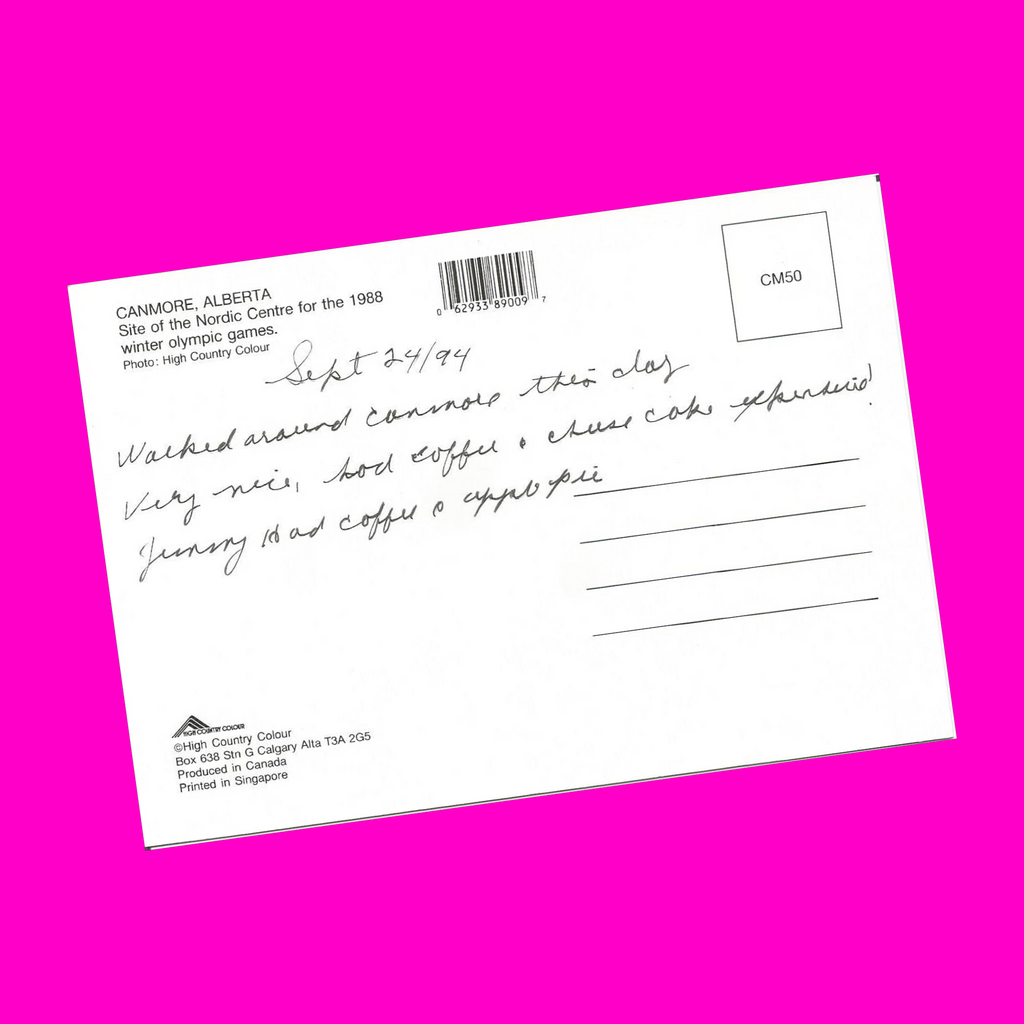 CANMORE, ALBERTA
Site of the Nordic Centre for the 1988
winter olympic games.
Photo: High Country Colour
0 62933 89009 7
CM50
Sept 24/94
Walked around canmore this day
Very nice, had coffee & cheese cake expensive!
Jimmy Had coffee & apple pie
HIGH COUNTRY COLOUR
©High Country Colour
Box 638 Stn G Calgary Alta T3A 2G5
Produced in Canada
Printed in Singapore